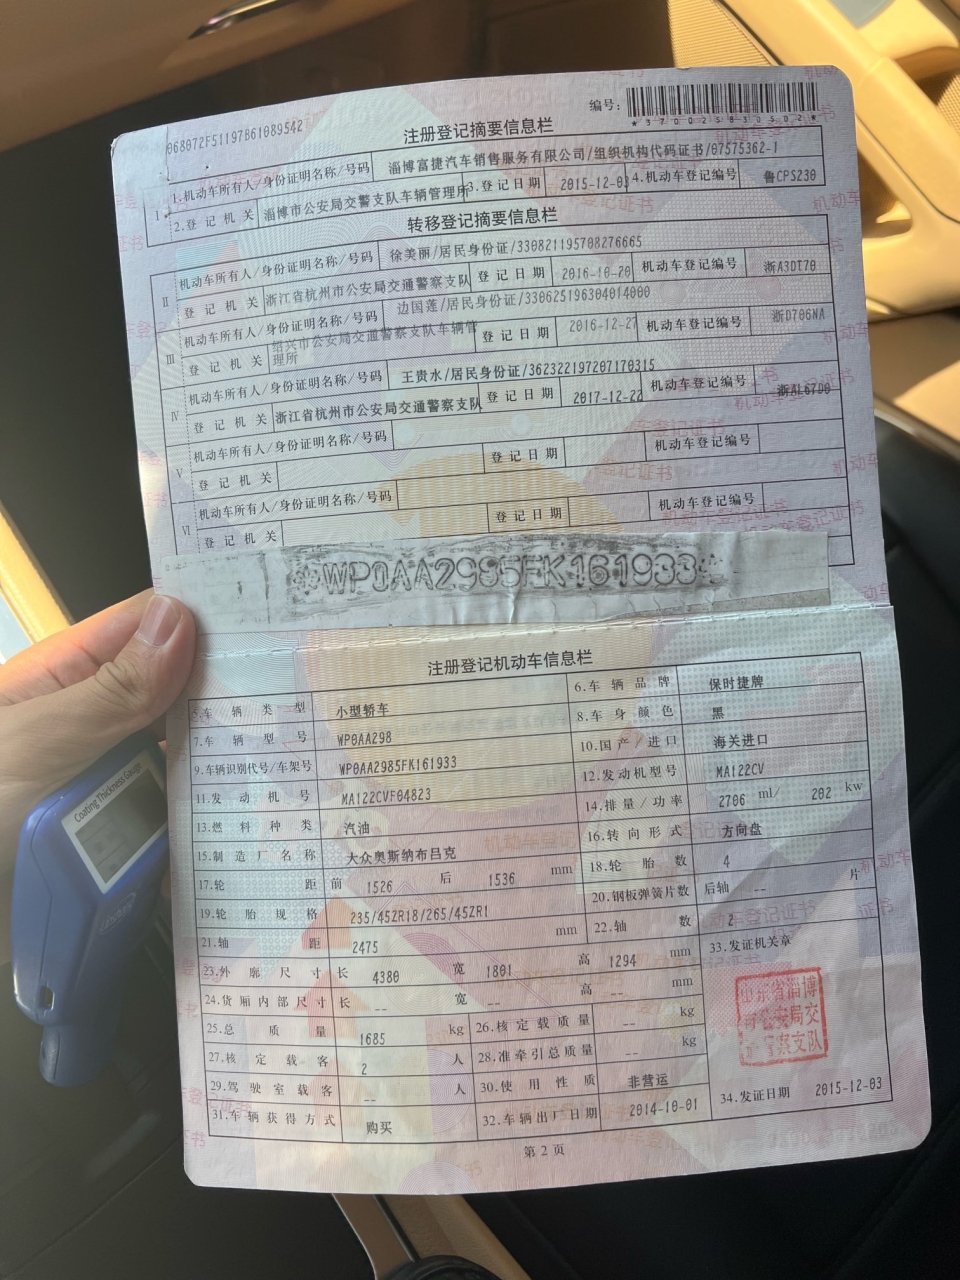 068072F51197B61089542
编号:
*370025830502*
注册登记摘要信息栏
I 1.机动车所有人/身份证明名称/号码 淄博富捷汽车销售服务有限公司/组织机构代码证书/07575362-1
2.登记机关 淄博市公安局交警支队车辆管理所 3.登记日期 2015-12-03 4.机动车登记编号 鲁CPS230
转移登记摘要信息栏
II 机动车所有人/身份证明名称/号码 徐美丽/居民身份证/330821195708276665
登记机关 浙江省杭州市公安局交通警察支队 登记日期 2016-10-20 机动车登记编号 浙A3DT70
III 机动车所有人/身份证明名称/号码 边国莲/居民身份证/330625196304014000
登记机关 绍兴市公安局交通警察支队车辆管理所 登记日期 2016-12-27 机动车登记编号 浙D706NA
IV 机动车所有人/身份证明名称/号码 王贵水/居民身份证/362322197207170315
登记机关 浙江省杭州市公安局交通警察支队 登记日期 2017-12-22 机动车登记编号 浙AL67D0
V 机动车所有人/身份证明名称/号码
登记机关 登记日期 机动车登记编号
VI 机动车所有人/身份证明名称/号码
登记机关 登记日期 机动车登记编号
WP0AA2985FK161933
注册登记机动车信息栏
5.车辆类型 小型轿车 6.车辆品牌 保时捷牌
7.车辆型号 WP0AA298 8.车身颜色 黑
9.车辆识别代号/车架号 WP0AA2985FK161933 10.国产/进口 海关进口
11.发动机号 MA122CVF04823 12.发动机型号 MA122CV
13.燃料种类 汽油 14.排量/功率 2706 ml/ 202 kw
15.制造厂名称 大众奥斯纳布吕克 16.转向形式 方向盘
17.轮距 前 1526 后 1536 mm 18.轮胎数 4
19.轮胎规格 235/45ZR18/265/45ZR1 20.钢板弹簧片数 后轴 -- 片
21.轴距 2475 mm 22.轴数 2
23.外廓尺寸 长 4380 宽 1801 高 1294 mm 33.发证机关章
24.货厢内部尺寸 长 -- 宽 -- 高 -- mm
25.总质量 1685 kg 26.核定载质量 -- kg
27.核定载客 2 人 28.准牵引总质量 -- kg
29.驾驶室载客 -- 人 30.使用性质 非营运
31.车辆获得方式 购买 32.车辆出厂日期 2014-10-01 34.发证日期 2015-12-03
第2页
Coating Thickness Gauge